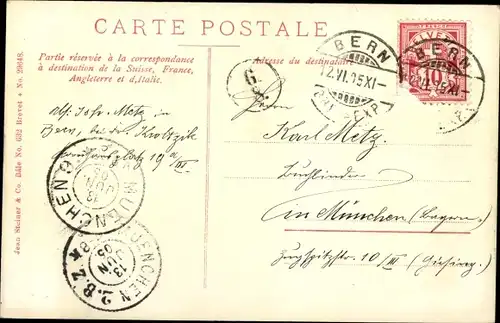 CARTE POSTALE
Partie réservée à la correspondance
à destination de la Suisse, France,
Angleterre et d'Italie.
Adresse du destinataire
Jean Steiner & Co. Bâle No. 632 Brevet + No. 29048.
BERN
12.VI.05XI-
BERN
12.VI.05XI-
HELVETIA
10
G.
Abs. Joh. Metz in
Bern,
10 a/III
Herrn
Karl Metz.
Buchbinder
in München (Bayern)
Zugspitzstr. 10/III (Giesing)
MUENCHEN
13
JUN
05
MUENCHEN
13
JUN
05
2.B.Z.